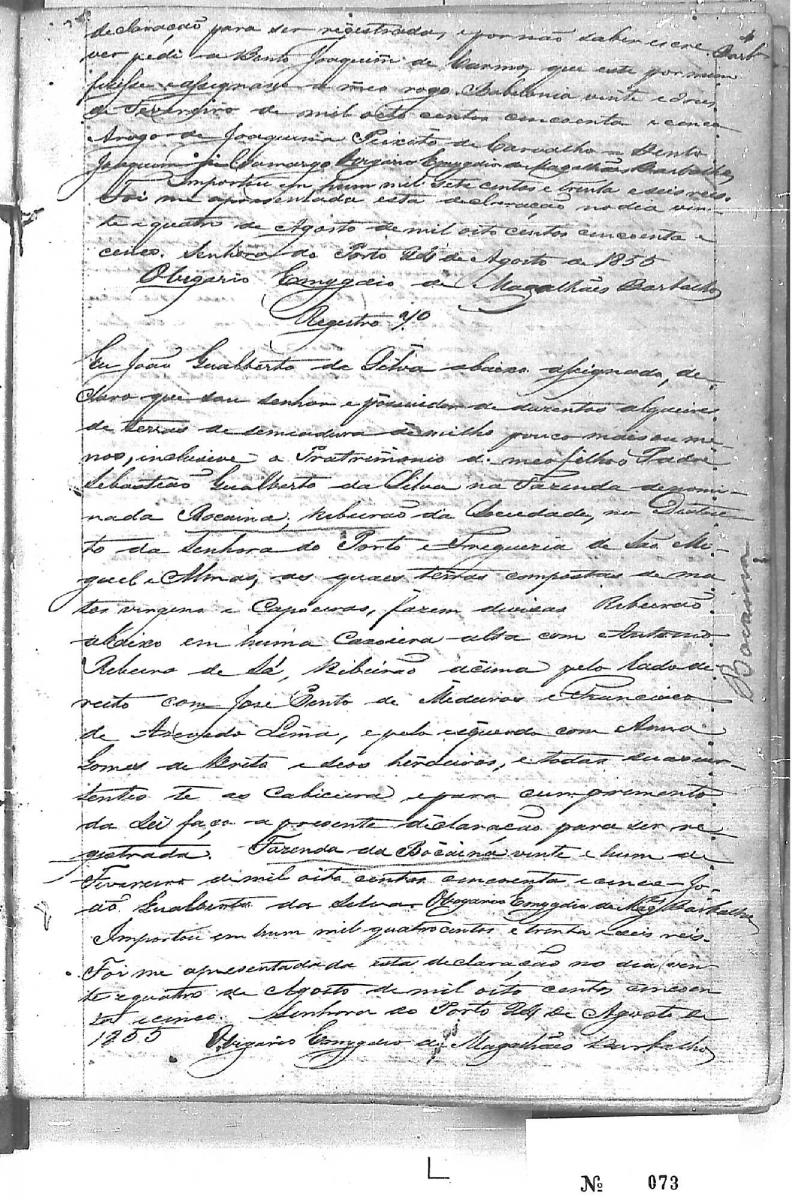 declaração para ser registrada, e por não saber escre-
ver pedi a Bento Joaquim de Camargo, que este por mim
fizesse e assignasse a meo rogo. Babilonia vinte e dous
de Fevereiro de mil oito centos cincoenta e cinco
Arogo de Joaquina Peixoto de Carvalho Bento
Joaquim de Camargo O Vigario Emygdio de Magalhães Barbalho
Importou em hum mil sete centos e trinta e seis reis.
Foi me apresentada esta declaração no dia vin-
te e quatro de Agosto de mil oito centos cincoenta e
cinco. Senhora do Porto 24 de Agosto de 1855
O Vigario Emygdio de Magalhães Barbalho
Registro 70
Eu João Gualberto da Silva abaixo assignado, de-
claro que sou senhor e possuidor de duzentos alqueires
de terras de semeadura de milho pouco mais ou me-
nos, inclusive o Patrimonio de meo filho Padre
Sebastião Gualberto da Silva na Fazenda denomi-
nada Bocaina, Ribeirão da Sociedade, no Distric-
to da Senhora do Porto e Freguezia de São Mi-
guel e Almas, as quaes terras compostas de ma-
tos virgens e Capoeiras, fazem divisas Ribeirão
abaixo em huma Caxoeira alta com Antonio
Ribeiro de Sá, Ribeirão acima pelo lado di-
reito com José Bento de Medeiros e Francisco
de Azevedo Lima, e pelo esquerdo com Anna
Gomes de Brito e seos herdeiros, e todas suas ver-
tentes té as Cabiceira e para cumprimento
da Lei faço a presente declaração para ser re-
gistrada. Fazenda da Bocaina vinte e hum de
Fevereiro de mil oito centos cincoenta e cinco Jo-
ão Gualberto da Silva O Vigario Emygdio de Magˢ Barbalho
Importou em hum mil quatrocentos e trinta e seis reis.
Foi me apresentada da esta declaração no dia vin-
te e quatro de Agosto de mil oito centos cincoen-
ta e cinco. Senhora do Porto 24 de Agosto de
1855 O Vigario Emygdio de Magalhães Barbalho
Bocaina
L
Nº 073